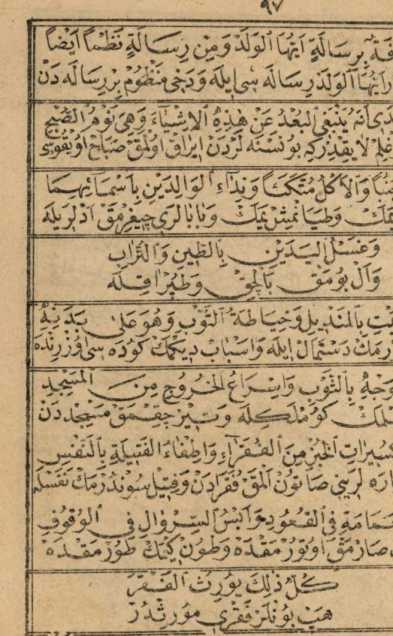 ٩٧
بر رسالة ايها الولد ومن رسالة نظما ايضا
ايها الولد رسالهسى ايله ودخى منظوم بر رساله دن
انه ينبغى البعد عن هذه الاشياء وهى نوم الصبح
كه بو نسنه لردن ايراق اولمق صباح اويقوسى
والاكل متكئا ونداء الوالدين باسمائهما
وطيانمش يمك وبابالرى چيغرمق ادلريله
وغسل اليدين بالطين والتراب
وال يومق بالچق وطپراقله
بالمنديل وخياطة الثوب وهو على بدنه
دستمال ايله واسباب ديكمك كوده سى اوزرنده
بالثوب واسراع الخروج من المسجد
كوملكله وتيز چقمق مسجددن
الخبز من الفقراء واطفاء الفتيلة بالنفس
صاتون المق فقرادن وفتيل سوندرمك نفسله
فى القعود ولبس السروال فى الوقوف
صارمق اوتورمقده وطون كيمك طورمقده
كل ذلك يورث الفقر
هپ بونلر فقرى مورثدر